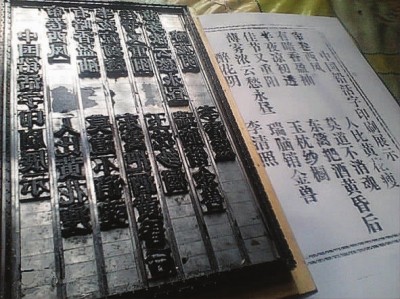 醉花阴 李清照
薄雾浓云愁永昼 瑞脑销金兽
佳节又重阳 玉枕纱橱
半夜凉初透 东篱把酒黄昏后
有暗香盈袖 莫道不消魂
帘卷西风 人比黄花瘦
中国活字印刷展示